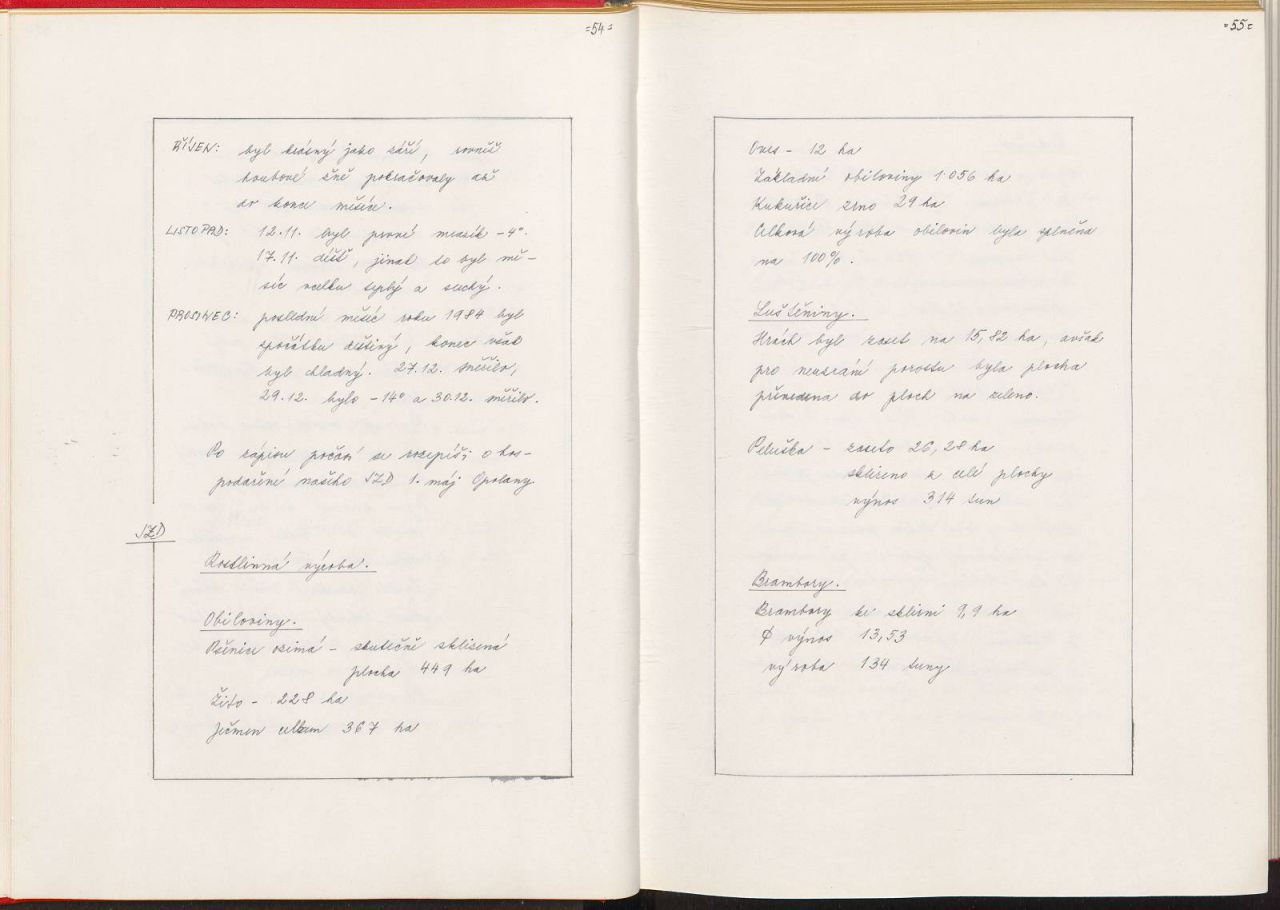 =54=
ŘÍJEN: byl krásný jako září, rovněž
houbové žně pokračovaly až
do konce měsíce.
LISTOPAD: 12.11. byl první mrazík -4°.
17.11. déšť, jinak to byl mě-
síc celkem teplý a suchý.
PROSINEC: poslední měsíc roku 1984 byl
zpočátku deštivý, konec však
byl chladný. 27.12. sněžilo,
29.12. bylo -14° a 30.12. sněžilo.
Po zápisu počasí se rozepíši o hos-
podaření našeho JZD 1. máj Opolany
JZD
Rostlinná výroba.
Obiloviny.
Pšenice ozimá - skutečně sklizená
plocha 449 ha
Žito - 228 ha
Ječmen celkem 367 ha
=55=
Oves - 12 ha
Základní obiloviny 1.056 ha
Kukuřice zrno 29 ha
Celková výroba obilovin byla splněna
na 100%.
Luštěniny.
Hrách byl zaset na 15,82 ha, avšak
pro neuzrání porostu byla plocha
převedena do ploch na zeleno.
Peluška - zaseto 26,28 ha
sklizeno z celé plochy
výnos 314 tun
Brambory.
Brambory ke sklizni 9,9 ha
ϕ výnos 13,53
výroba 134 tuny